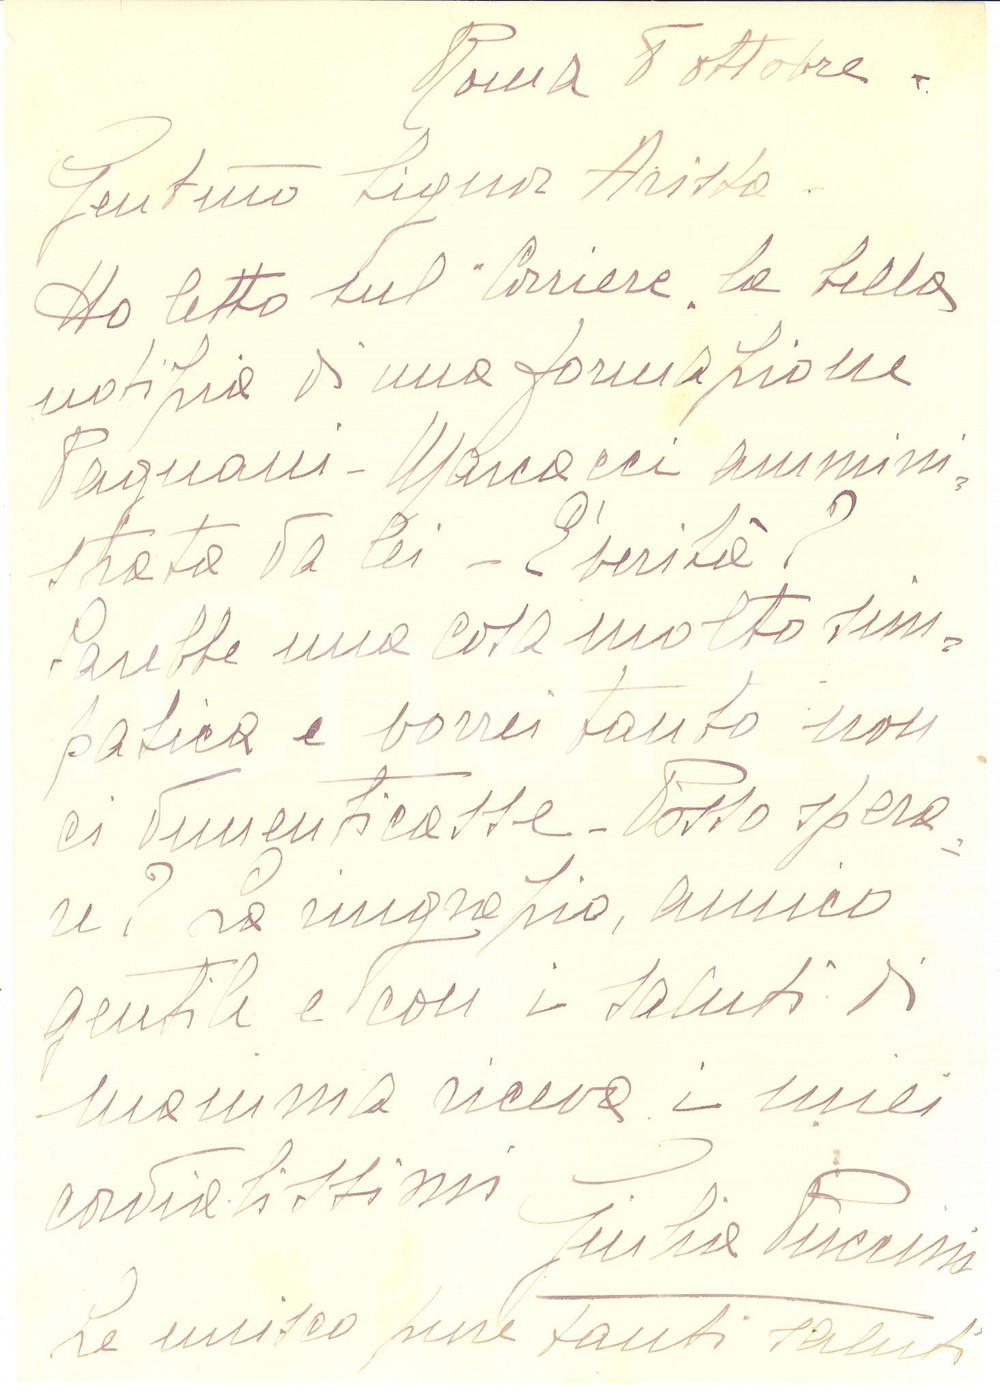 Roma 8 ottobre.
Gent.mo Signor Arista -
Ho letto sul "Corriere" la bella
notizia di una formazione
Pagnani - Marcacci ammini=
strata da lei - È verità?
Sarebbe una cosa molto sim=
patica e vorrei tanto non
ci dimenticasse - Posso spera=
re? La ringrazio, amico
gentile e con i saluti di
mamma riceva i miei
cordialissimi
Giulia Puccini
Le unisco pure tanti saluti